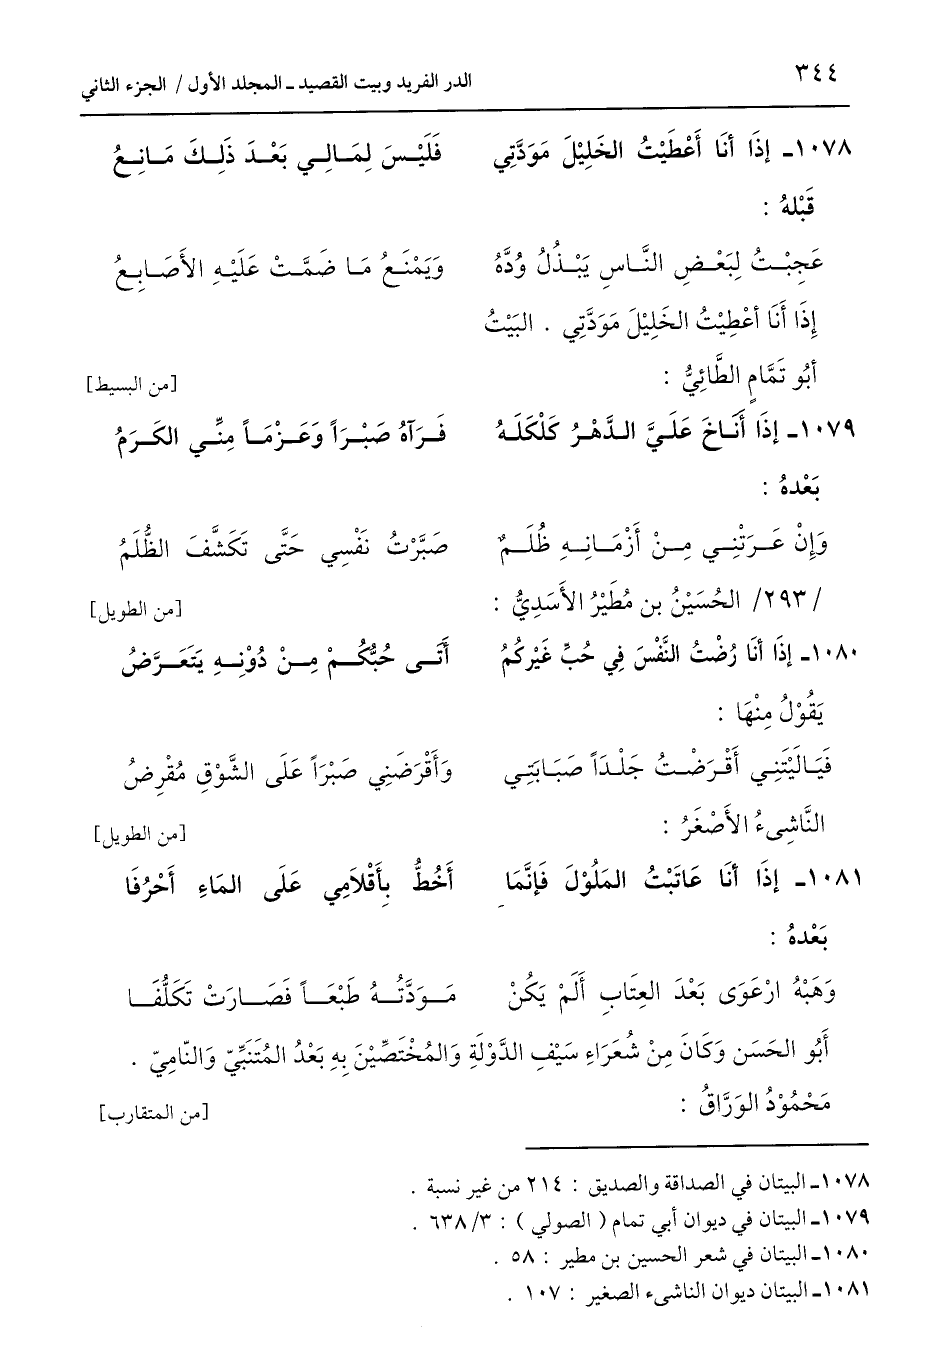 ٣٤٤
الدر الفريد وبيت القصيد ـ المجلد الأول / الجزء الثاني
١٠٧٨ـ إِذَا أنَا أَعْطَيْتُ الخَلِيْلَ مَوَدَّتِي فَلَيْسَ لِمَالِي بَعْدَ ذَلِكَ مَانِعُ
قَبْلهُ :
عَجِبْتُ لِبَعْضِ النَّاسِ يَبْذُلُ وُدَّهُ وَيَمْنَعُ مَا ضَمَّتْ عَلَيْهِ الأَصَابِعُ
إِذَا أَنَا أعْطِيْتُ الخَلِيْلَ مَوَدَّتِي . البَيْتُ
أَبُو تَمَّامٍ الطَّائِيُّ : [من البسيط]
١٠٧٩ـ إِذَا أَنَاخَ عَلَيَّ الدَّهْرُ كَلْكَلَهُ فَرَآهُ صَبْرَاً وَعَزْمَاً مِنِّي الكَرَمُ
بَعْدهُ :
وَإِنْ عَرَتْنِي مِنْ أَزْمَانِهِ ظُلَمٌ صَبَّرْتُ نَفْسِي حَتَّى تَكَشَّفَ الظُّلَمُ
/٢٩٣/ الحُسَيْنُ بن مُطَيْرُ الأَسَدِيُّ : [من الطويل]
١٠٨٠ـ إِذَا أنَا رُضْتُ النَّفْسَ فِي حُبِّ غَيْركُمُ أَتَى حُبُّكُمْ مِنْ دُوْنِهِ يَتَعَرَّضُ
يَقُوْلُ مِنْهَا :
فَيَالَيْتَنِي أَقْرَضْتُ جَلْدَاً صَبَابَتِي وَأَقْرَضَنِي صَبْرَاً عَلَى الشَّوْقِ مُقْرِضُ
النَّاشِىءُ الأَصْغَرُ : [من الطويل]
١٠٨١ـ إِذَا أنَا عَاتَبْتُ المَلُوْلَ فَإِنَّمَا أَخُطُّ بِأَقْلَامِي عَلَى المَاءِ أَحْرُفَا
بَعْدهُ :
وَهَبْهُ ارْعَوَى بَعْدَ العِتَابِ أَلَمْ يَكُنْ مَوَدَّتُهُ طَبْعَاً فَصَارَتْ تَكَلُّفَا
أَبُو الحَسَن وَكَانَ مِنْ شُعَرَاءِ سَيْفِ الدَّوْلَةِ وَالمُخْتَصِّيْنَ بِهِ بَعْدُ المُتَنَبِّيّ وَالنّامِيّ .
مَحْمُوْدُ الوَرَّاقُ : [من المتقارب]
١٠٧٨ـ البيتان في الصداقة والصديق : ٢١٤ من غير نسبة .
١٠٧٩ـ البيتان في ديوان أبي تمام ( الصولي ) : ٣/ ٦٣٨ .
١٠٨٠ـ البيتان في شعر الحسين بن مطير : ٥٨ .
١٠٨١ـ البيتان ديوان الناشىء الصغير : ١٠٧ .